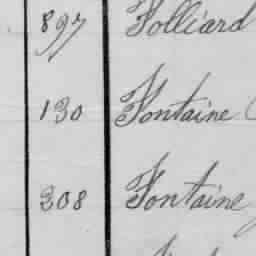 897 Folliard
130 Fontaine
208 Fontaine